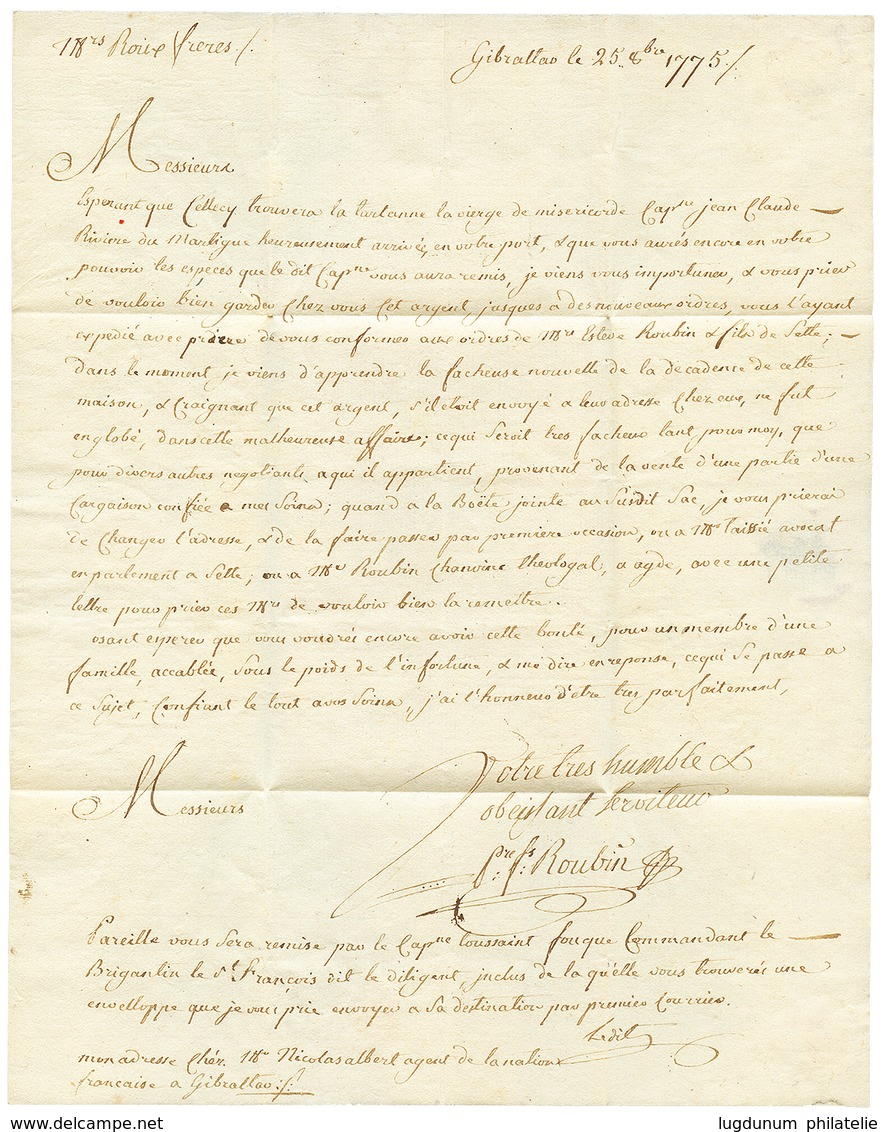 Mrs Roux freres /.
Gibraltar le 25 8bre 1775 /.
Messieurs
Esperant que Cellecy trouvera la tartanne la vierge de misericorde Capne jean Claude —
Riviere du Martigue heureusement arrivée, en votre port, & que vous aurés encore en votre
pouvoir les espéces que le dit Capne vous aura remis, je viens vous importuner, & vous prier
de vouloir bien garder Chez vous Cet argent, jusques a des nouveaux ordres, vous l'ayant
expedié avec priere de vous conformer aux ordres de Mrs Esteve Roubin & fils de Sette; —
dans le moment je viens d'apprendre la facheuse nouvelle de la décadence de cette
maison, & Craignant que cet argent, s'il etoit envoyé a leur adresse Chez eux, ne fut
englobé, dans cette malheureuse affaire; cequi Seroit tres facheux tant pour moy, que
pour divers autres negotiants a qui il appartient, provenant de la vente d'une partie d'une
Cargaison confiée a mes Soins; quand a la Boëte jointe au Susdit Sac, je vous prierai
de Changer l'adresse, & de la faire passer par premiere occasion, ou a Mr Taissié avocat
en parlement a Sette; ou a Mr Roubin Chanoine theologal, a agde, avec une petite
lettre pour prier ces Mrs de vouloir bien la remettre.
osant esperer que vous voudrés encore avoir cette bonté, pour un membre d'une
famille, accablée, Sous le poids de l'infortune, & me dire en reponse, cequi Se passe a
ce Sujet, Confiant le tout a vos Soins, j'ai l'honneur d'être tres parfaitement,
Messieurs
Votre tres humble &
obeissant Serviteur
pre fs: Roubin
Pareille vous Sera remise par le Capne toussaint fouque Commandant le —
Brigantin le St François dit le diligent, inclus de la quelle vous trouverés une
envelloppe que je vous prie envoyer a Sa destination par premier Courrier.
Ledit
mon adresse Chéz Mr Nicolas albert agent de la nation
francaise a Gibraltar ./.
lugdunum philatelie